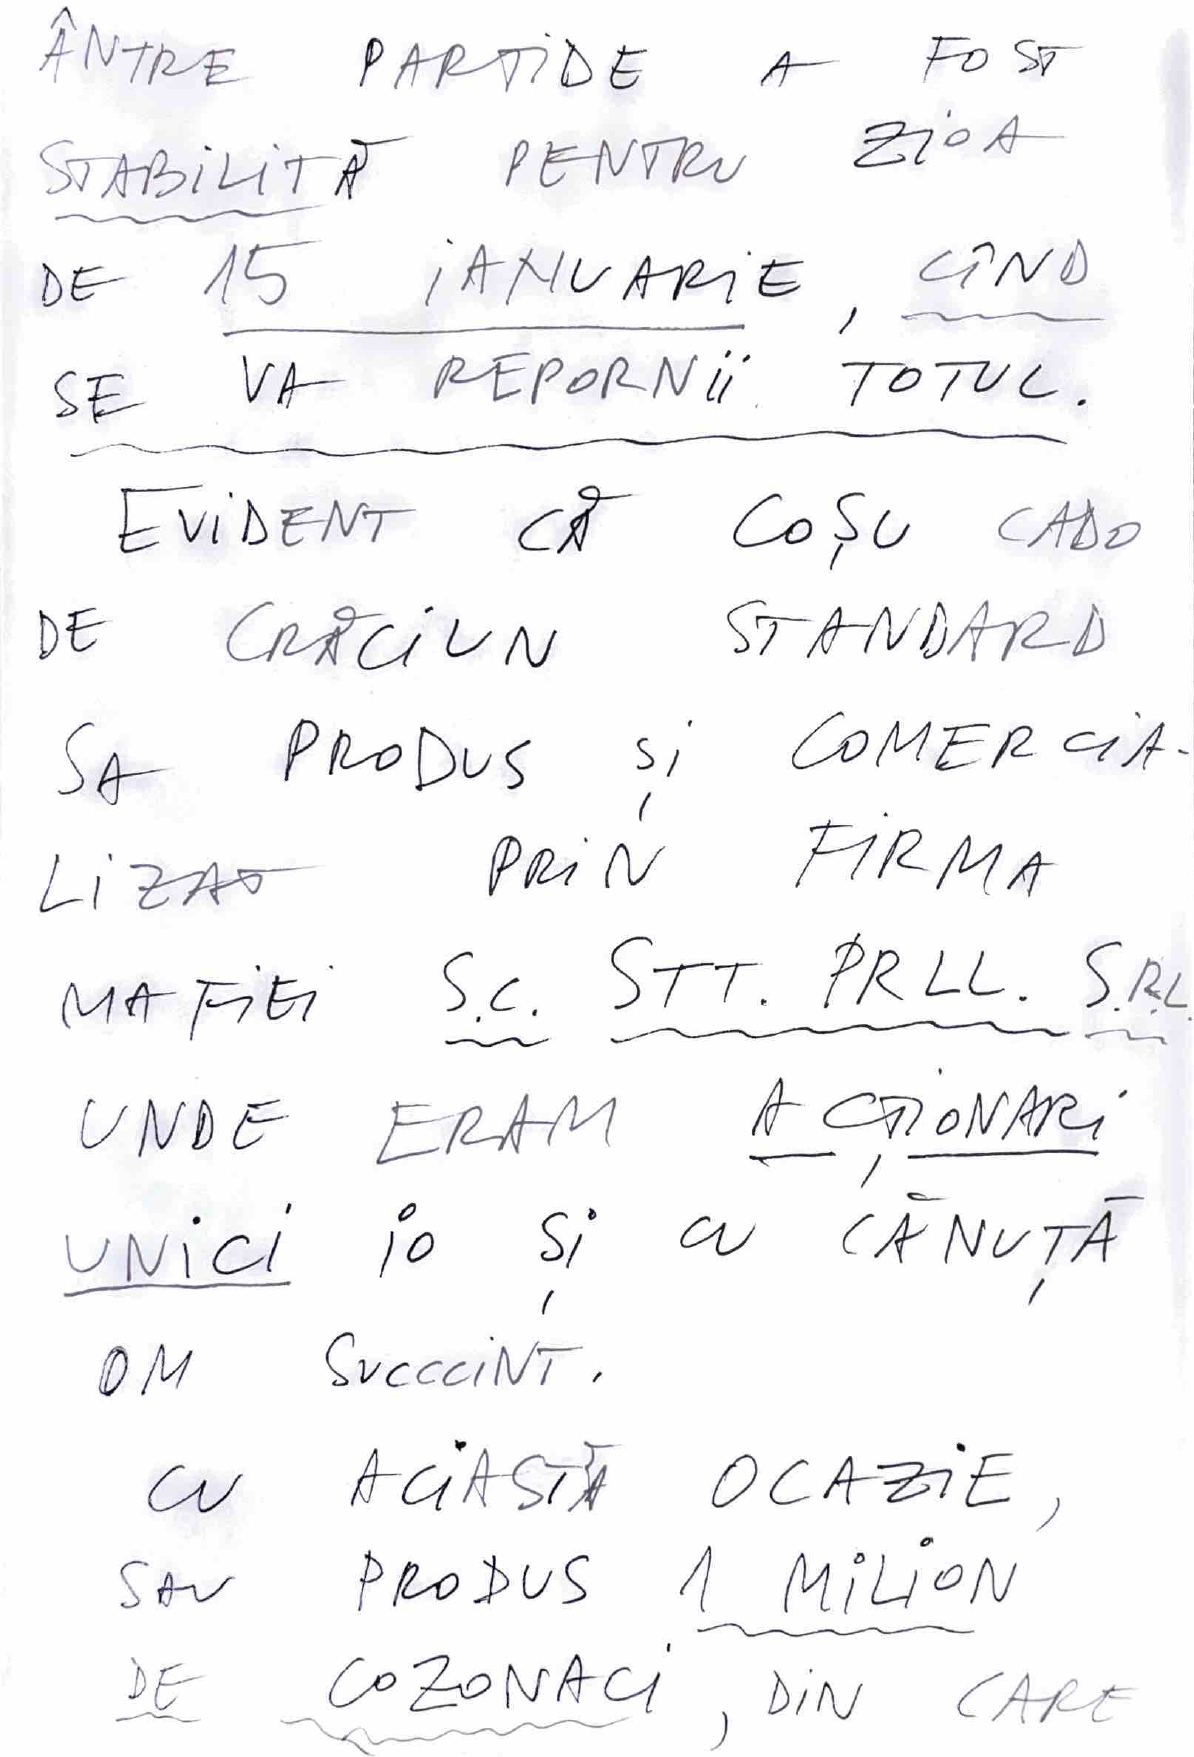 ÂNTRE PARTIDE A FOST
STABiLiTĂ PENTRU ZiOA
DE 15 iANUARiE, CÎND
SE VA REPORNii TOTUL.
EViDENT CĂ COȘU CADO
DE CRĂCiUN STANDARD
SA PRODUS Și COMERCiA-
LiZAT PRiN FiRMA
MAFiEi S.C. STT. PRLL. S.R.L.
UNDE ERAM ACȚiONARi
UNiCi iO Și CU CĂNUȚĂ
OM SUCCCiNT.
CU ACiASTĂ OCAZiE,
SAU PRODUS 1 MiLiON
DE COZONACi, DiN CARE